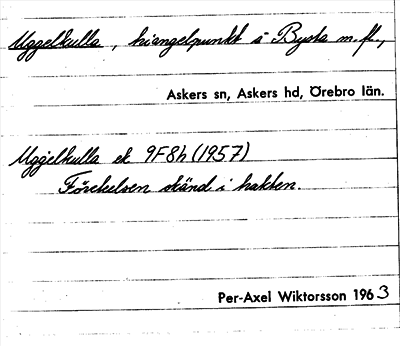 Uggelkulla, triangelpunkt å Bysta m.fl.,
Askers sn, Askers hd, Örebro län.
Uggelkulla ek 9F8h (1957)
Förekelsen skänd i trakten.
Per-Axel Wiktorsson 1963